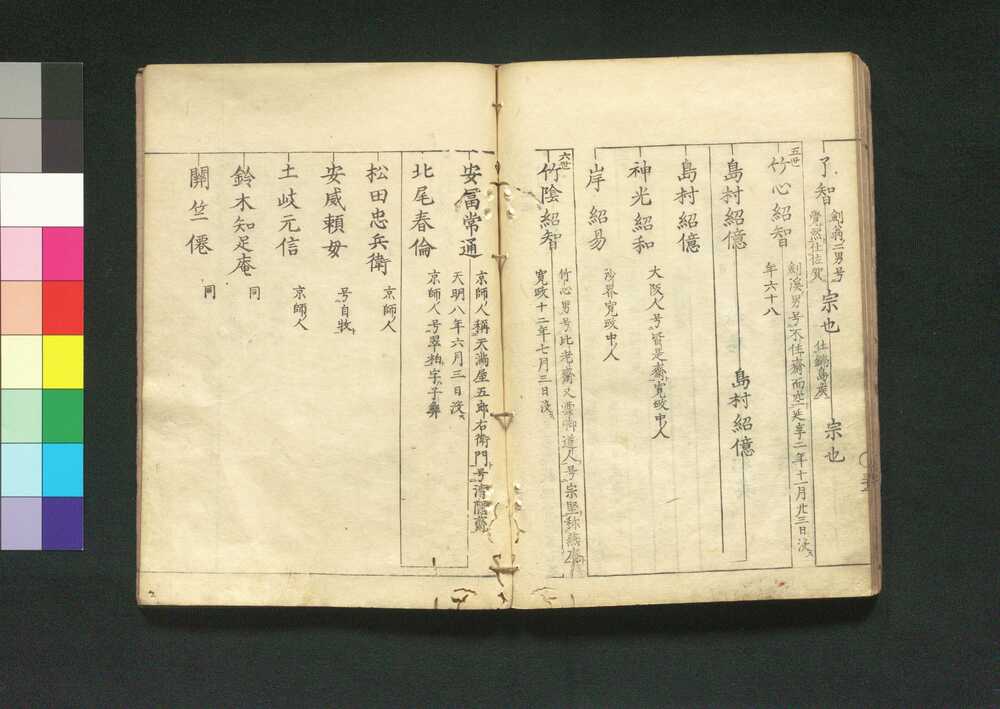 了智 劍翁二男号
宗也 仕鍋島矦
宗也
五世
竹心紹智 劍溪男号不住齋 延享二年十一月廿三日没
年六十八
島村紹億
島村紹億
島村紹億
神光紹和 大阪人号皆是齋寛政中人
岸紹易 沙界寛政中人
六世
竹陰紹智 竹心男号比老齋又雲脚道人号宗堅称燕齋
寛政十二年七月三日没
安冨常通 京師人称天満屋五郎右衛門号清隱齋
天明八年六月三日没
北尾春倫 京師人号翠粕字子彝
松田忠兵衛 京師人
安威頼母 号自牧
土岐元信 京師人
鈴木知足庵 同
關竺僊 同